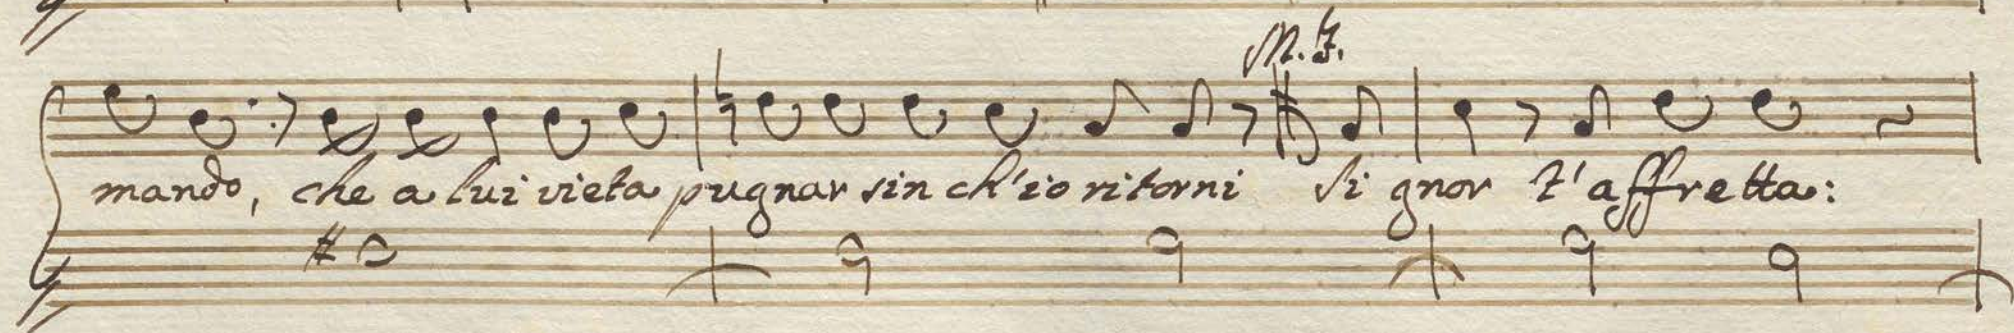 M. F.
mando, che a lui vieta pugnar sin ch'io ritorni Signor t'affretta: